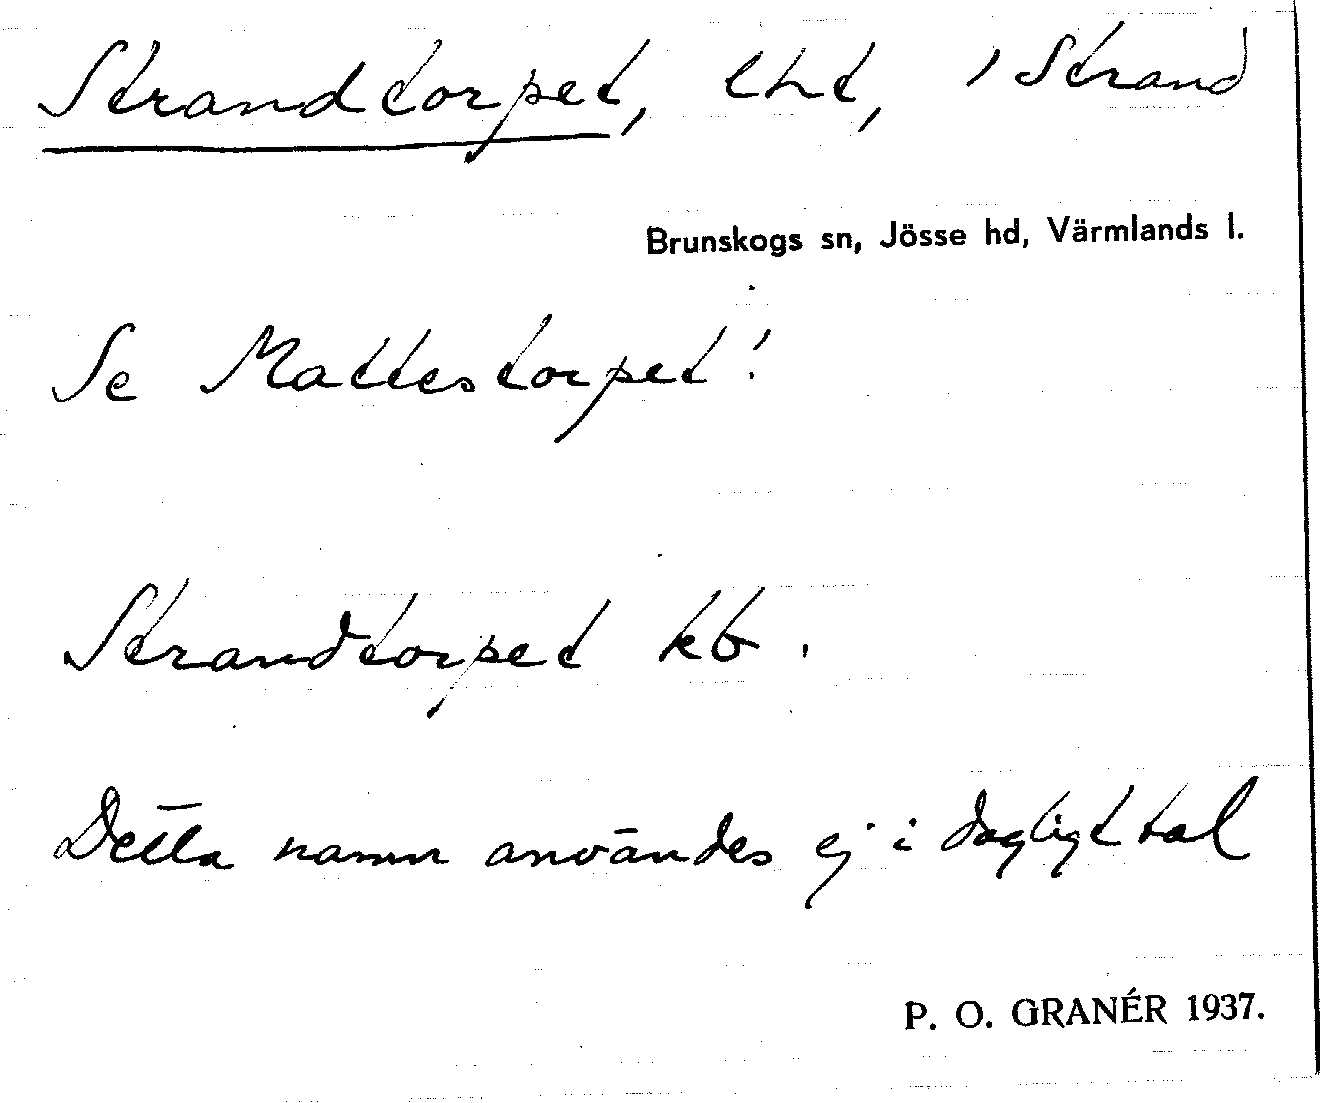 Strandtorpet, lht, 1 Strand
Brunskogs sn, Jösse hd, Värmlands l.
Se Mattestorpet!
Strandtorpet kb.
Detta namn användes ej i dagligt tal
P. O. GRANÉR 1937.